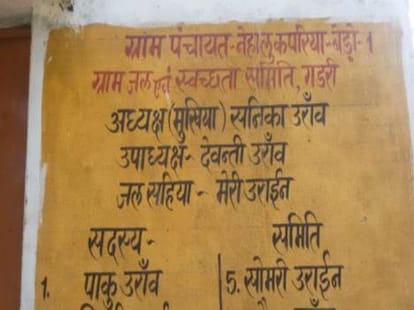 ग्राम पंचायत-नेहालुकपरिया-बेड़ो-1
ग्राम जल एवं स्वच्छता समिति, गडरी
अध्यक्ष (मुखिया) सनिका उराँव
उपाध्यक्ष- देवन्ती उराँव
जल सहिया- मेरी उराईन
सदस्य- समिति
1. पाकु उराँव 5. सोमरी उराईन